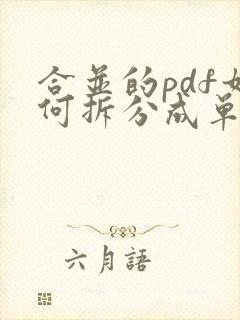 合並的pdf如
何拆分成單
六月語